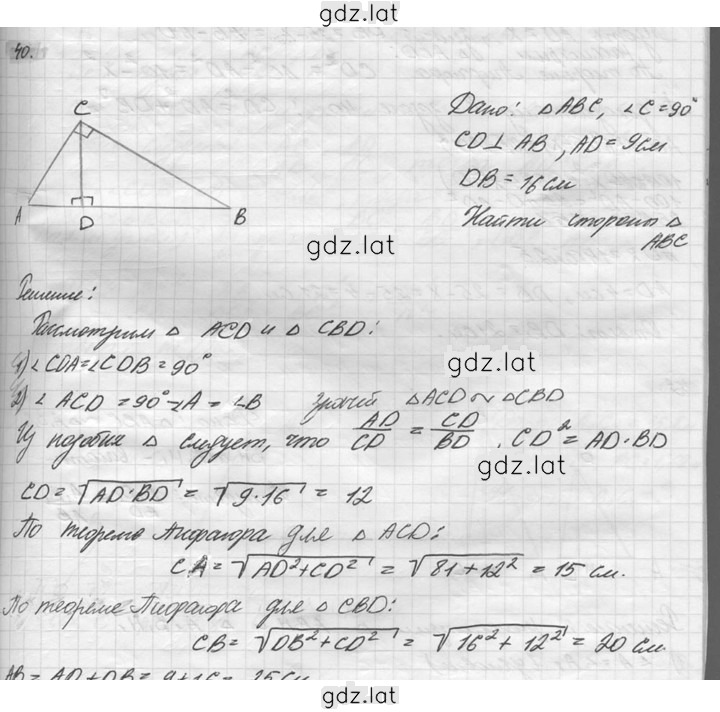 gdz.lat
40.
C
A
D
B
Дано: △ABC, ∠C=90°
CD⊥AB, AD=9см
DB=16см
Найти стороны △
ABC
gdz.lat
Решение:
Рассмотрим △ ACD и △ CBD:
1) ∠CDA=∠CDB=90°
gdz.lat
2) ∠ ACD = 90°-∠A = ∠B значит △ACD ~ △CBD
Из подобия △ следует, что AD/CD = CD/BD . CD²=AD·BD
gdz.lat
CD=√AD·BD = √9·16 = 12
По теореме Пифагора для △ ACD:
gdz.lat
CA=√AD²+CD² = √81+12² = 15 см.
По теореме Пифагора для △ CBD:
CB=√DB²+CD² = √16²+12² = 20 см.
AB = AD+DB = 9+16 = 25см
gdz.lat